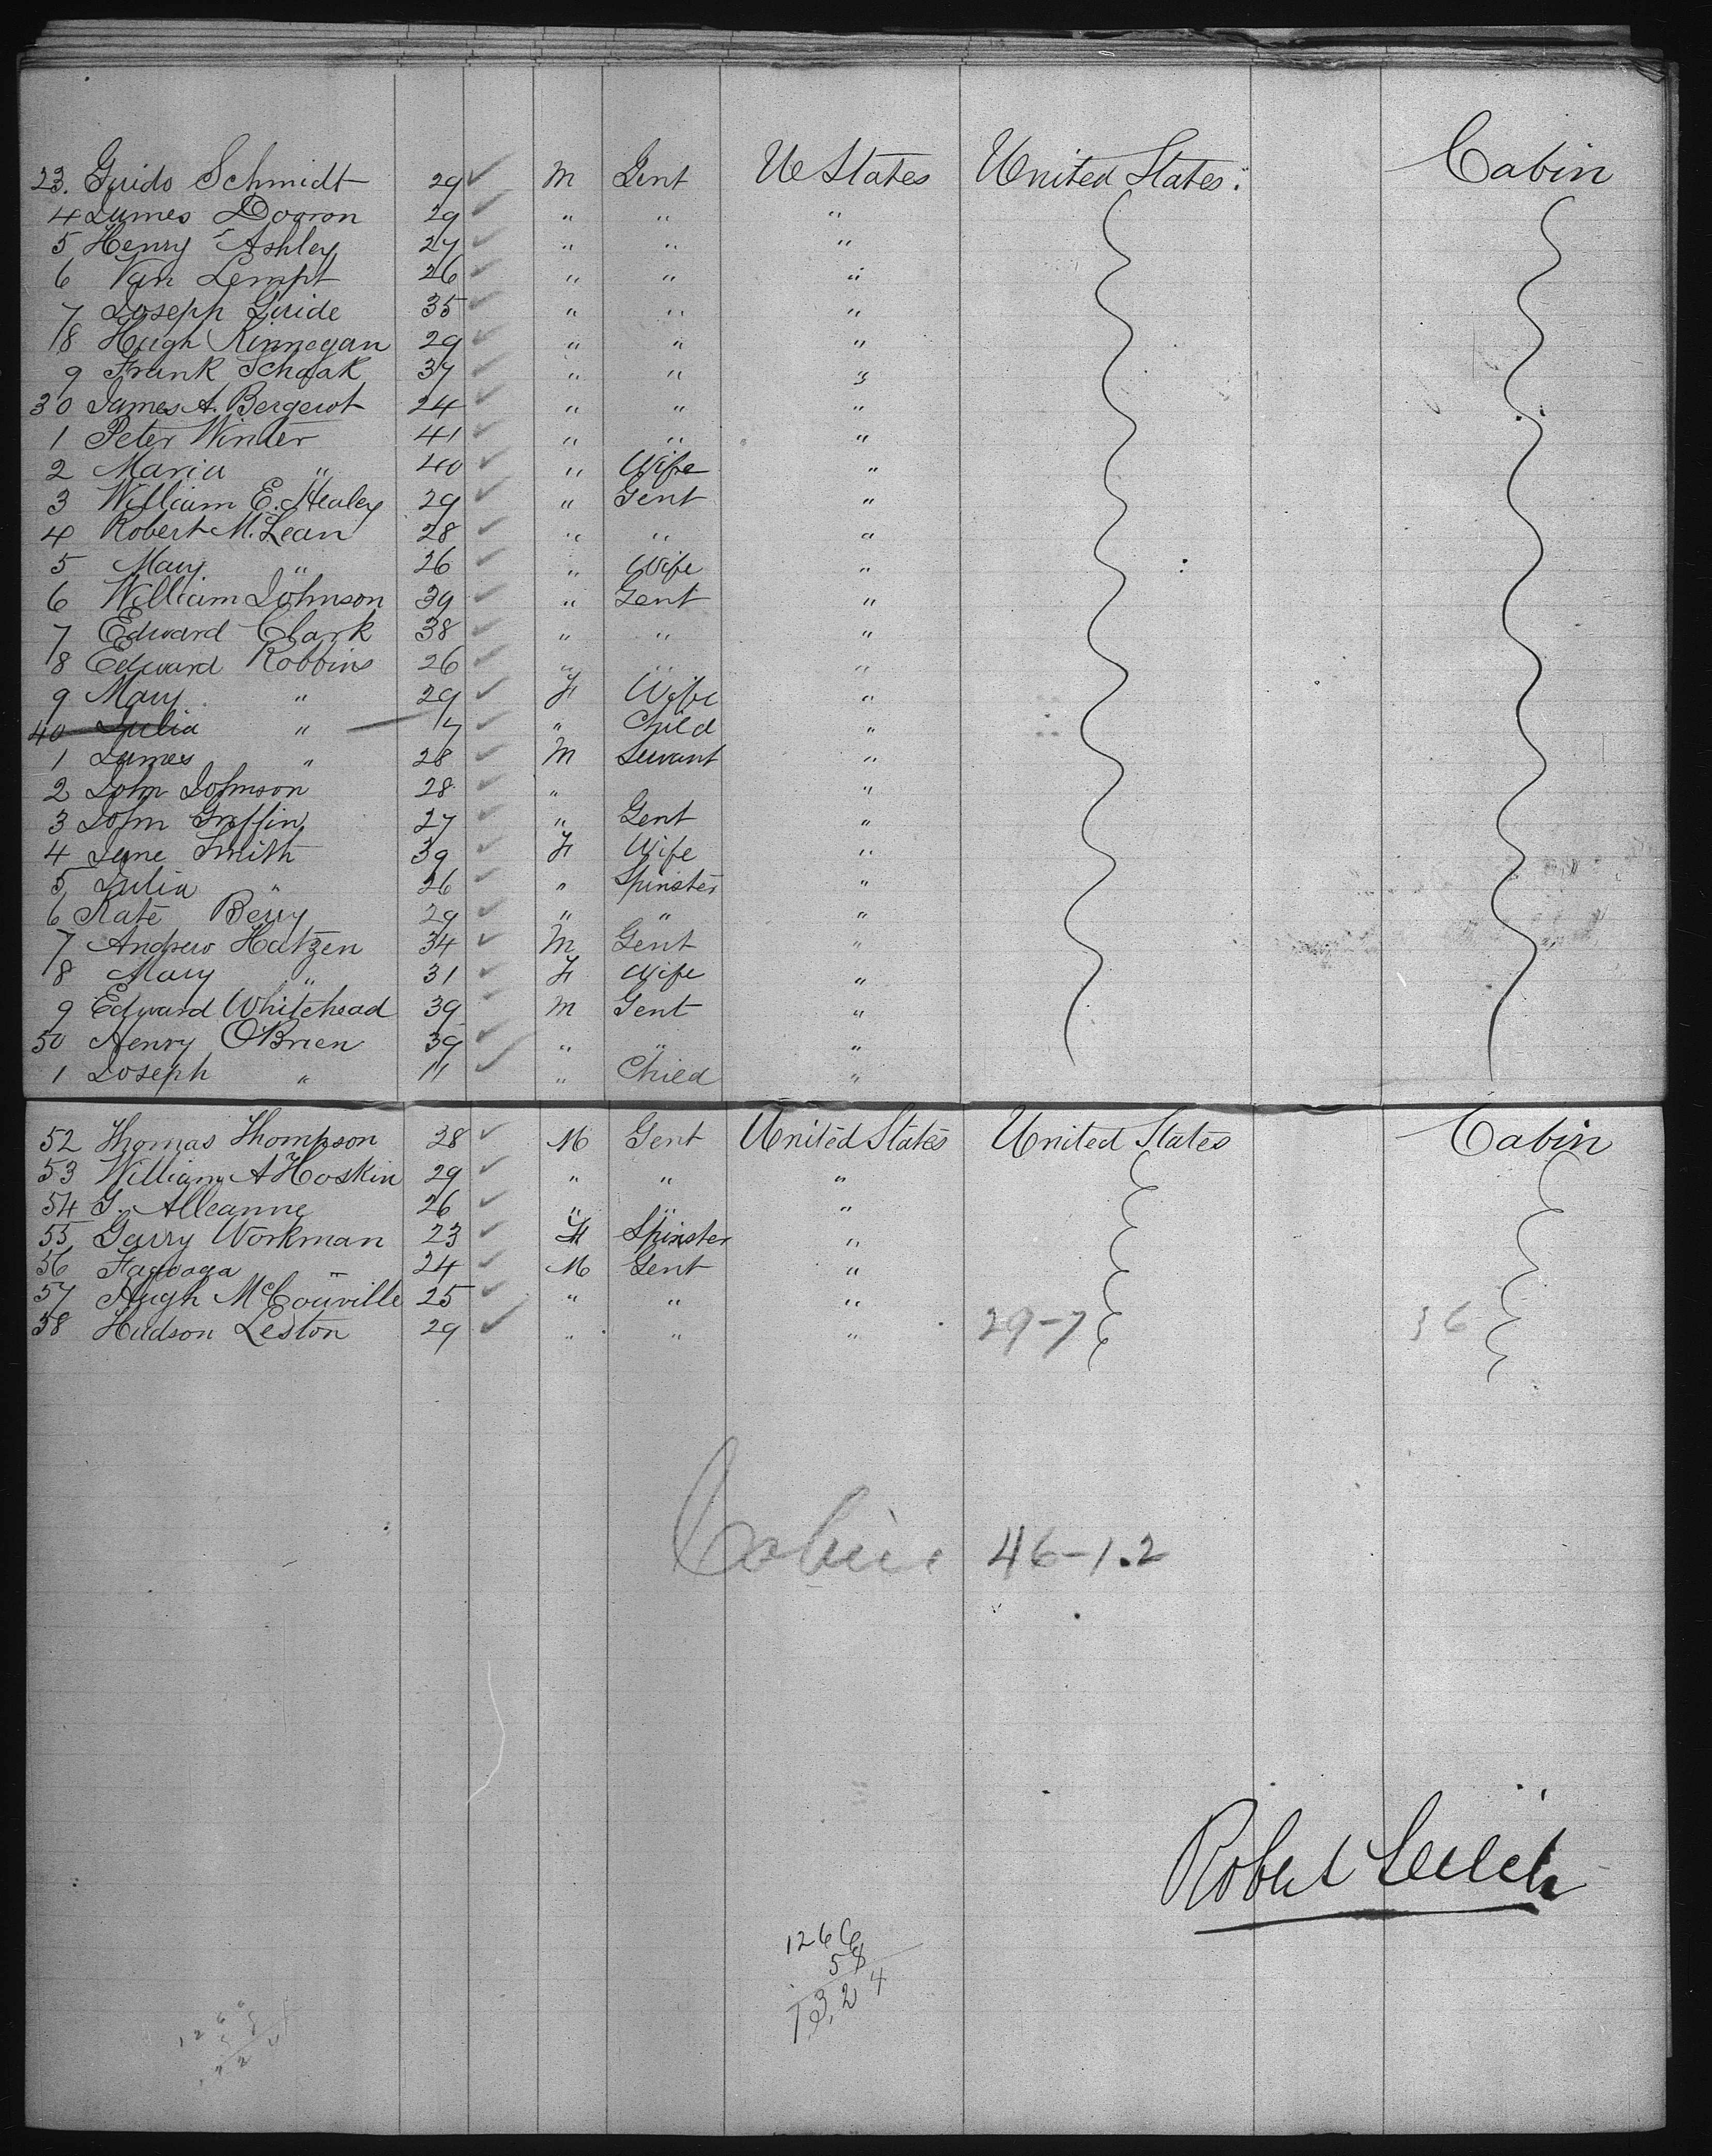 23. Guido Schmidt 29 M Gent Ue States United States. Cabin
4 James Dooron 29 " " "
5 Henry Ashley 27 " " "
6 Van Lempt 26 " " "
7 Joseph Guide 35 " " "
8 Hugh Kinnegan 29 " " "
9 Frank Schaak 37 " " "
30 James A. Bergerot 24 " " "
1 Peter Winter 41 " " "
2 Maria " 40 " Wife "
3 William E. Healey 29 " Gent "
4 Robert M. Lean 28 " " "
5 Mary " 26 " Wife "
6 William Johnson 39 " Gent "
7 Edward Clark 38 " " "
8 Edward Robbins 26 " " "
9 Mary " 29 F Wife "
40 Julia " 17 " Child "
1 James " 28 M Servant "
2 John Johnson 28 " "
3 John Griffin 27 " Gent "
4 Jane Smith 39 F Wife "
5 Julia " 26 " Spinster "
6 Kate Berry 29 " " "
7 Andrew Hatzen 34 M Gent "
8 Mary " 31 F Wife "
9 Edward Whitehead 39 M Gent "
50 Henry O'Brien 39 " " "
1 Joseph " 11 " Child "
52 Thomas Thompson 28 M Gent United States United States Cabin
53 William A Hoskin 29 " " "
54 G. Alleanne 26 " " "
55 Garry Workman 23 F Spinster "
56 Fagoaga " 24 M Gent "
57 Hugh McCouville 25 " " "
58 Hudson Leston 29 " " " 29-7 36
Cabin 46-1.2
Robert Leitch
1266
58
1324